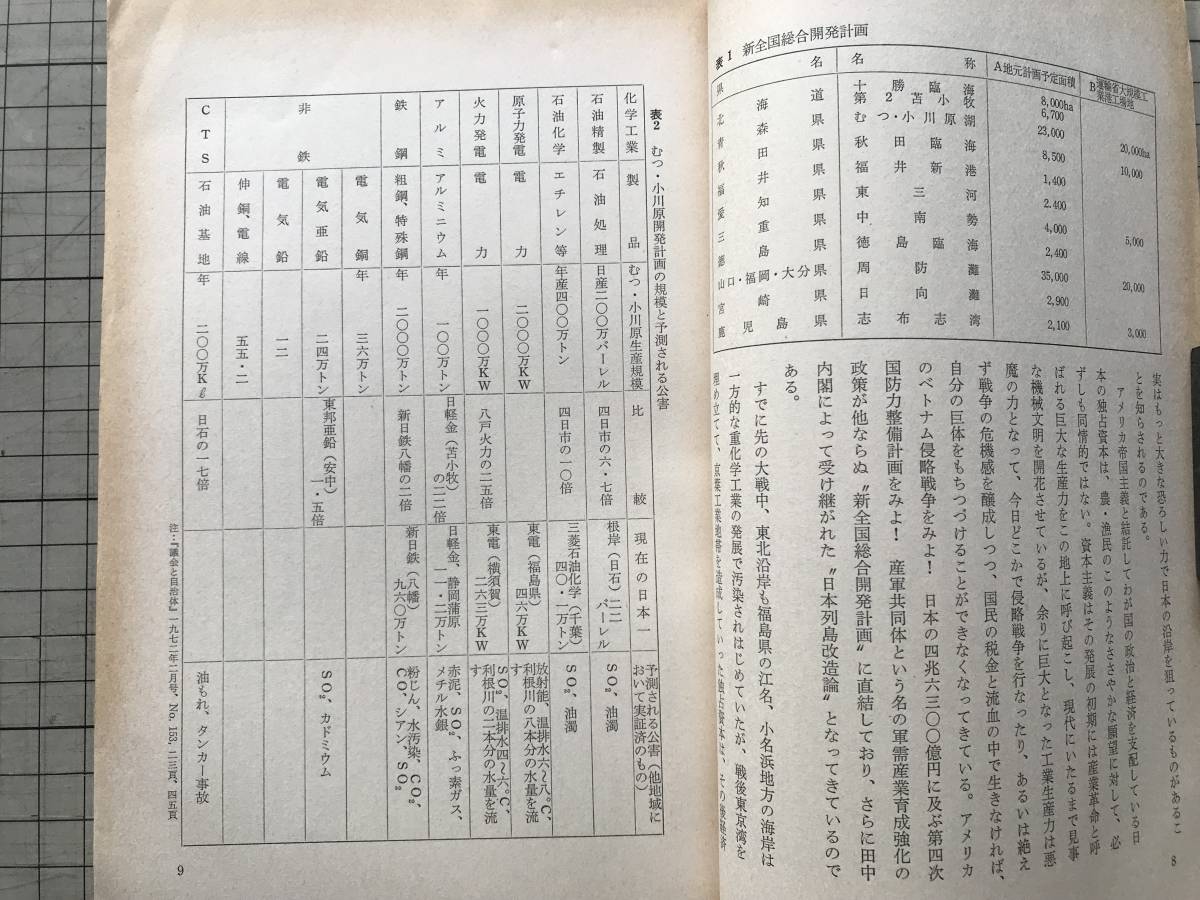 表1 新全国総合開発計画
県名 名称 A地元計画予定面積 B運輸省大規模工業港工場地
北海道 十勝臨海 8,000ha
第2苫小牧 6,700
青森県 むつ・小川原湖 23,000 20,000ha
秋田県 秋田臨海 8,500 10,000
福井県 福井新港 1,400
愛知県 東三河 2.400
三重県 中南勢 4,000 5,000
徳島県 徳島臨海 2,400
山口・福岡・大分県 周防灘 35,000 20,000
宮崎県 日向灘 2,900
鹿児島県 志布志湾 2,100 3,000
実はもっと大きな恐ろしい力で日本の沿岸を狙っているものがあるこ
とを知らされるのである。
アメリカ帝国主義と結託してわが国の政治と経済を支配している日
本の独占資本は、農・漁民のこのようなささやかな願望に対して、必
ずしも同情的ではない。資本主義はその発展の初期には産業革命と呼
ばれる巨大な生産力をこの地上に呼び起こし、現代にいたるまで見事
な機械文明を開花させているが、余りに巨大となった工業生産力は悪
魔の力となって、今日どこかで侵略戦争を行なったり、あるいは絶え
ず戦争の危機感を醸成しつつ、国民の税金と流血の中で生きなければ、
自分の巨体をもちつづけることができなくなってきている。アメリカ
のベトナム侵略戦争をみよ! 日本の四兆六三〇〇億円に及ぶ第四次
国防力整備計画をみよ! 産軍共同体という名の軍需産業育成強化の
政策が他ならぬ〝新全国総合開発計画〟に直結しており、さらに田中
内閣によって受け継がれた〝日本列島改造論〟となってきているので
ある。
すでに先の大戦中、東北沿岸も福島県の江名、小名浜地方の海岸は
一方的な重化学工業の発展で汚染されはじめていたが、戦後東京湾を
埋め立てて、京葉工業地帯を造成していった独占資本は、その後経済
8
表2 むつ・小川原開発計画の規模と予測される公害
化学工業 製品 むつ・小川原生産規模 比較 現在の日本一 予測される公害(他地域において実証済のもの)
石油精製 石油処理 日産二〇〇万バーレル 四日市の六・七倍 根岸(日石)二二バーレル SO₂、油濁
石油化学 エチレン等 年産四〇〇万トン 四日市の一〇倍 三菱石油化学(千葉)四〇・一万トン SO₂、油濁
原子力発電 電力 二〇〇〇万KW 東電(福島県)四六万KW 放射能、温排水六〜八。C、利根川の八本分の水量を流す
火力発電 電力 一〇〇〇万KW 八戸火力の二五倍 東電(横須賀)二六三万KW SO₂、温排水四〜六。C、利根川の二本分の水量を流す
アルミ アルミニウム 年一〇〇万トン 日軽金(苫小牧)の二二倍 日軽金、静岡蒲原一一・二万トン 赤泥、SO₂、ふっ素ガス、メチル水銀
鉄鋼 粗鋼、特殊鋼 年二〇〇〇万トン 新日鉄八幡の二倍 新日鉄(八幡)九六〇万トン 粉じん、水汚染、CO₂、CO、シアン、SO₂
非鉄 電気銅 年三六万トン
電気亜鉛 二四万トン 東邦亜鉛(安中)一・五倍 SO₂、カドミウム
電気鉛 一二
伸銅、電線 五五・二
CTS 石油基地 年二〇〇万Kℓ 日石の一七倍 油もれ、タンカー事故
注:『議会と自治体』一九七二年二月号、No.153, 二三頁、四五頁
9